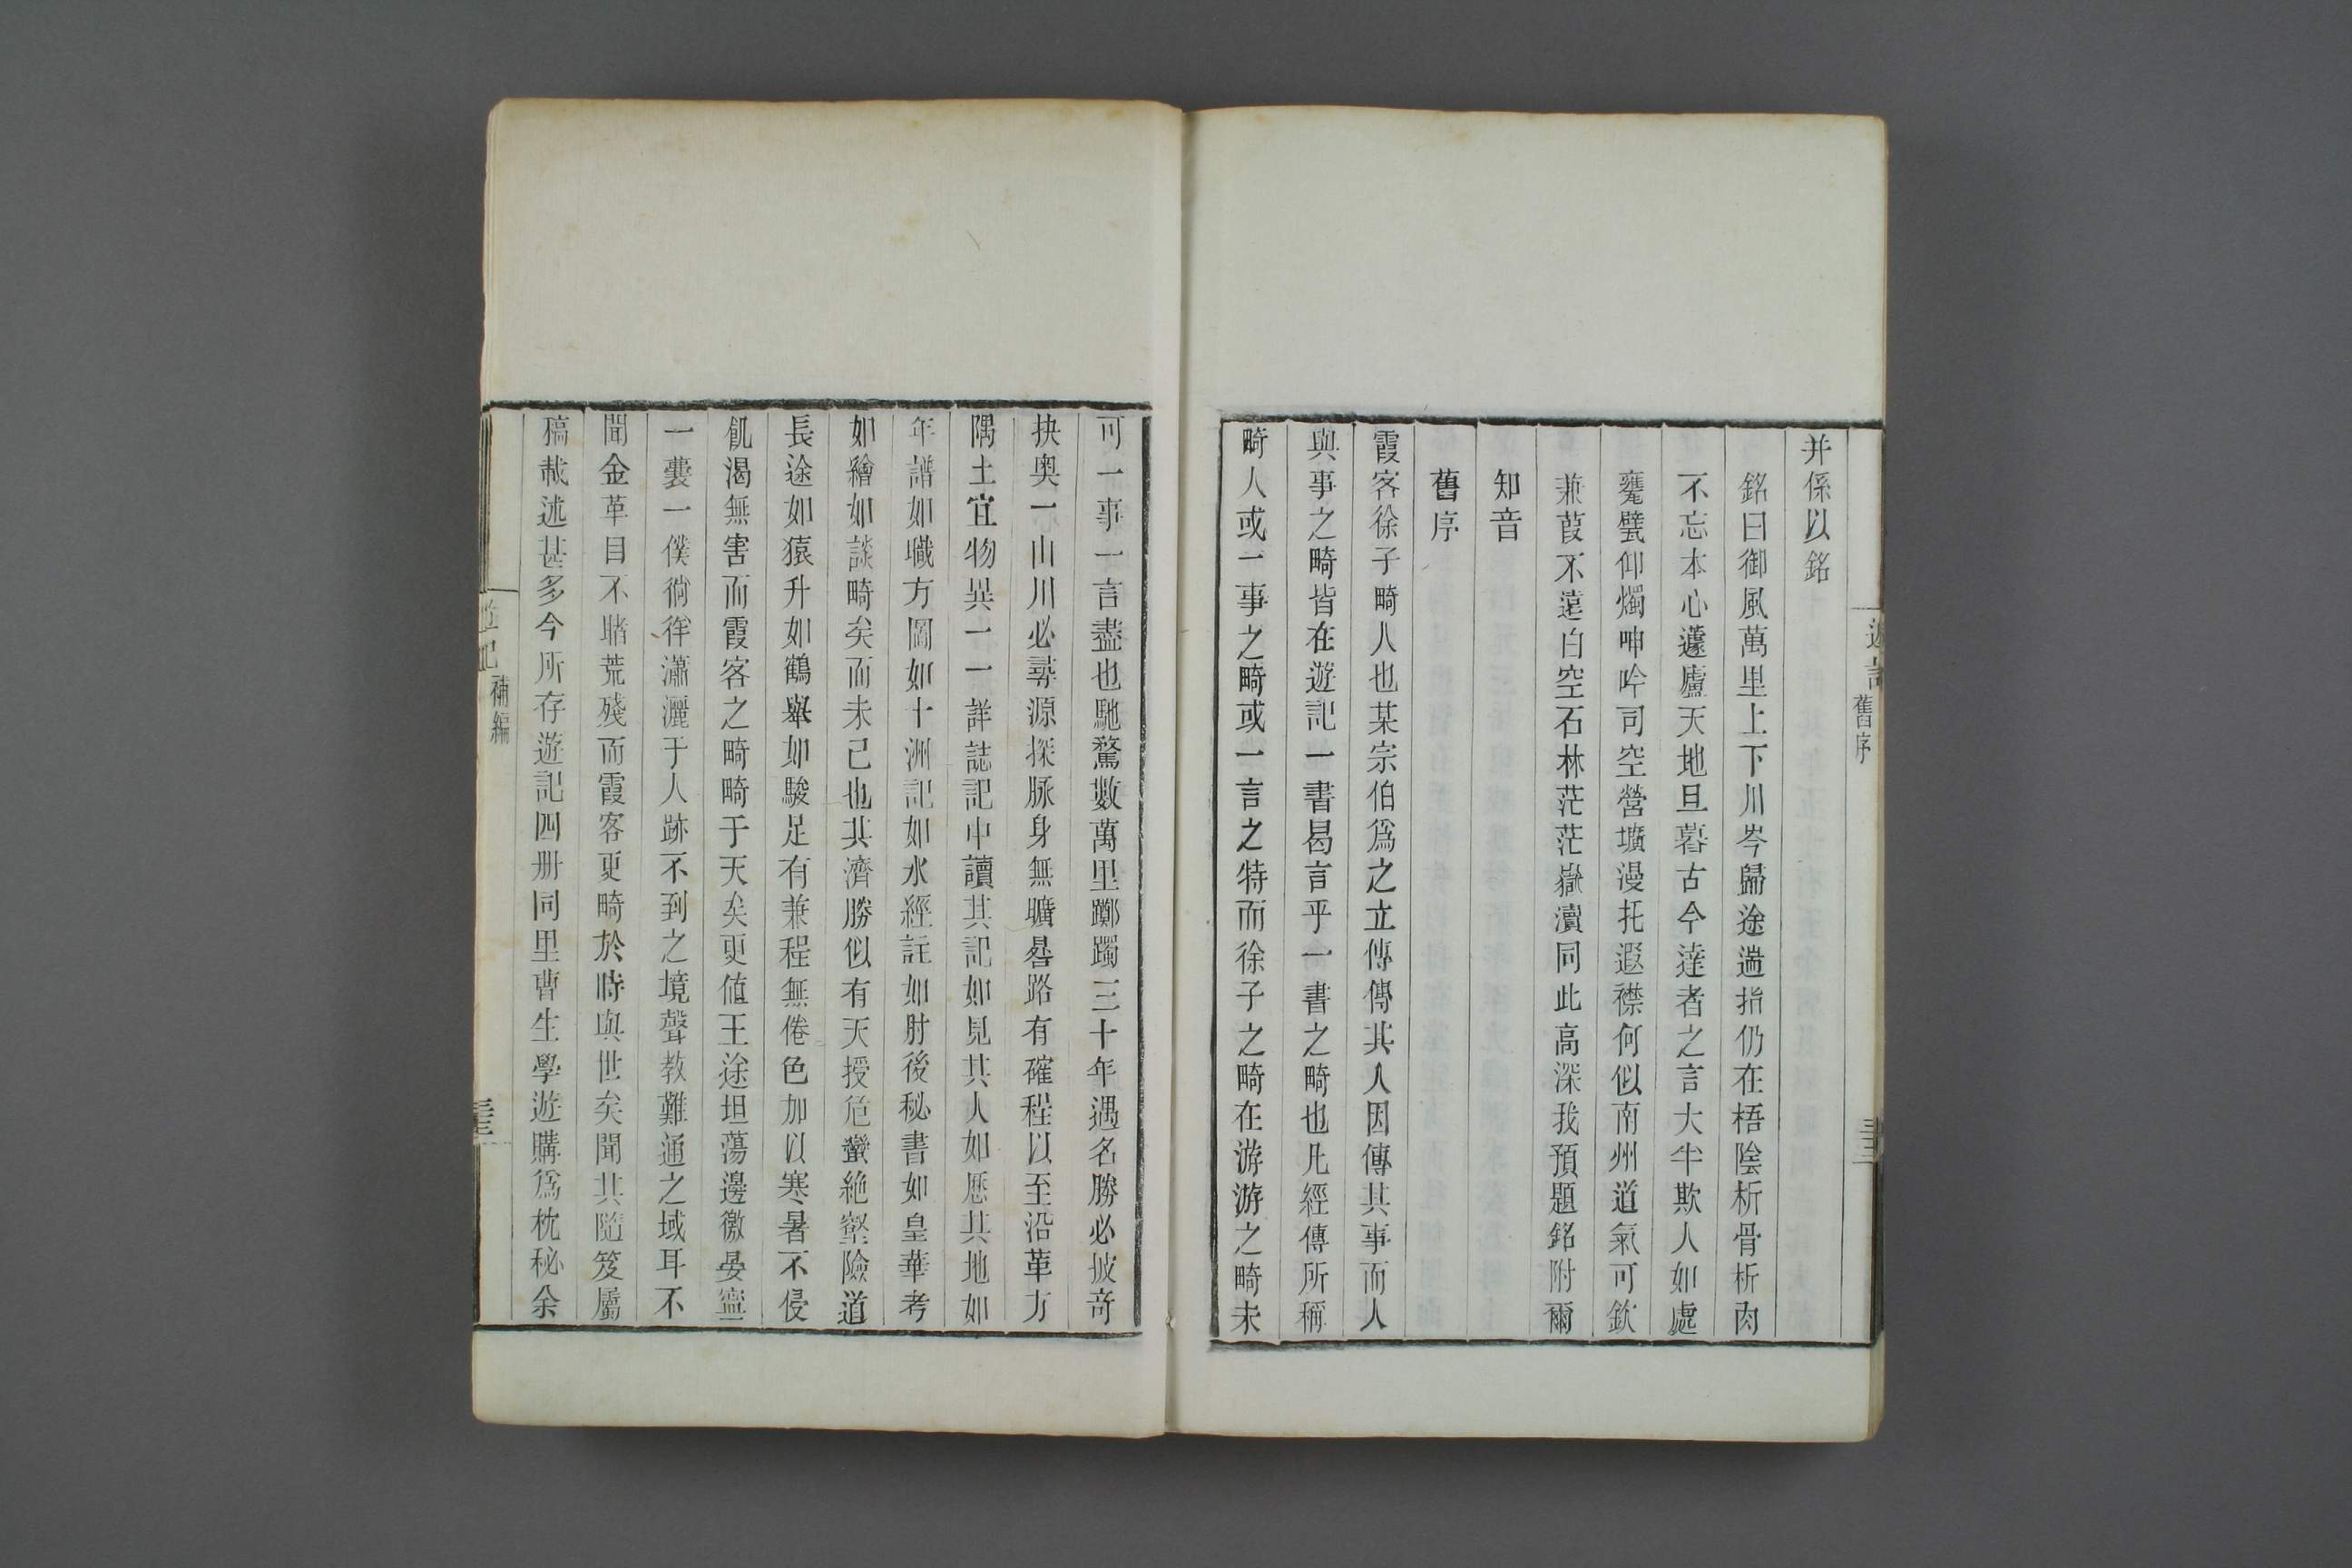 并係以銘
銘曰御風萬里上下川岑歸途遄指仍在梧陰析骨析肉
不忘本心蘧廬天地旦暮古今達者之言大半欺人如處
甕甓仰燭呻吟司空營壙漫托遐襟何似南州道氣可欽
兼葭不遠白空石林茫茫嶽瀆同此高深我預題銘附爾
知音
舊序
霞客徐子畸人也某宗伯爲之立傳傳其人因傳其事而人
與事之畸皆在遊記一書曷言乎一書之畸也凡經傳所稱
畸人或一事之畸或一言之特而徐子之畸在游游之畸未
遊記
舊序
可一事一言盡也馳騖數萬里躑躅三十年遇名勝必披奇
抉奥一山川必尋源探脉身無曠晷路有確程以至沿革方
隅土宜物異一一詳誌記中讀其記如見其人如歷其地如
年譜如職方圖如十洲記如水經註如肘後秘書如皇華考
如繪如談畸矣而未已也其濟勝似有天授危巒絶壑險道
長途如猿升如鶴舉如駿足有兼程無倦色加以寒暑不侵
飢渴無害而霞客之畸畸于天矣更値王途坦蕩邊徼晏寧
一囊一僕徜徉瀟灑于人跡不到之境聲教難通之域耳不
聞金革目不睹荒殘而霞客更畸於時與世矣聞其隨笈屬
稿裁述甚多今所存遊記四册同里曹生學遊購爲枕秘余
遊記
補編